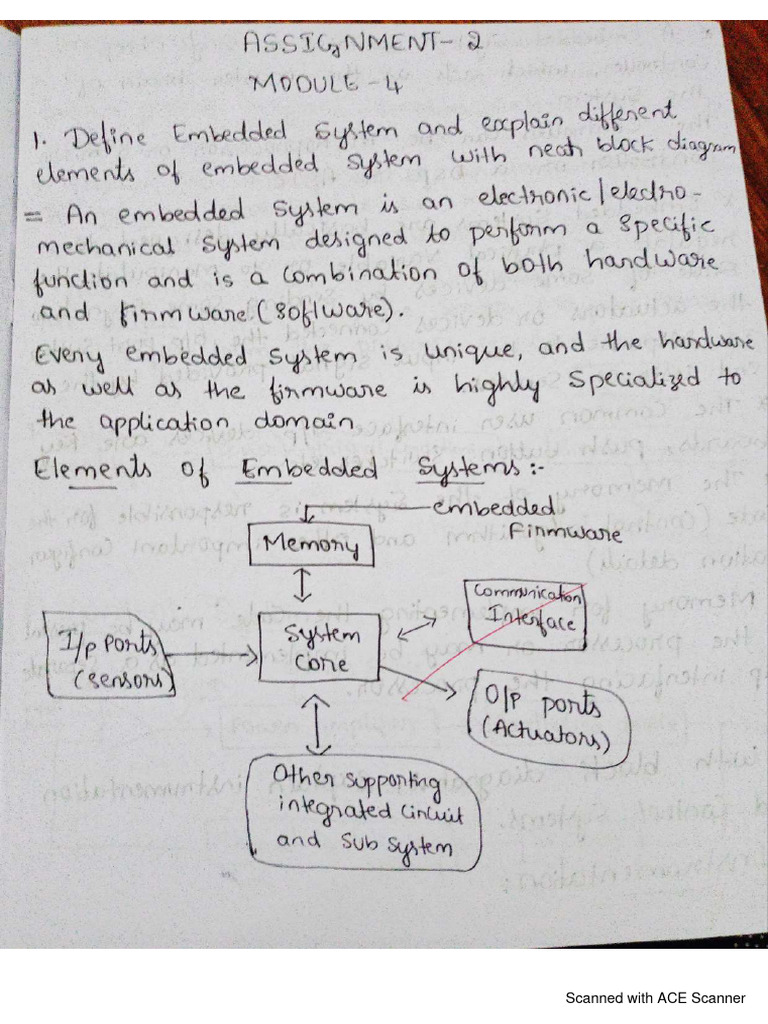 ASSIGNMENT-2
MODULE-4
1. Define Embedded System and explain different
elements of embedded system with neat block diagram
= An embedded System is an electronic/electro-
mechanical System designed to perform a specific
function and is a combination of both hardware
and firmware.(software).
Every embedded System is unique, and the hardware
as well as the firmware is highly specialized to
the application domain
Elements of Embedded Systems:-
embedded
Firmware
Memory
Communication
Interface
I/p Ports
(sensors)
System
Core
O/P ports
(Actuators)
Other supporting
integrated Circuit
and Sub System
Scanned with ACE Scanner